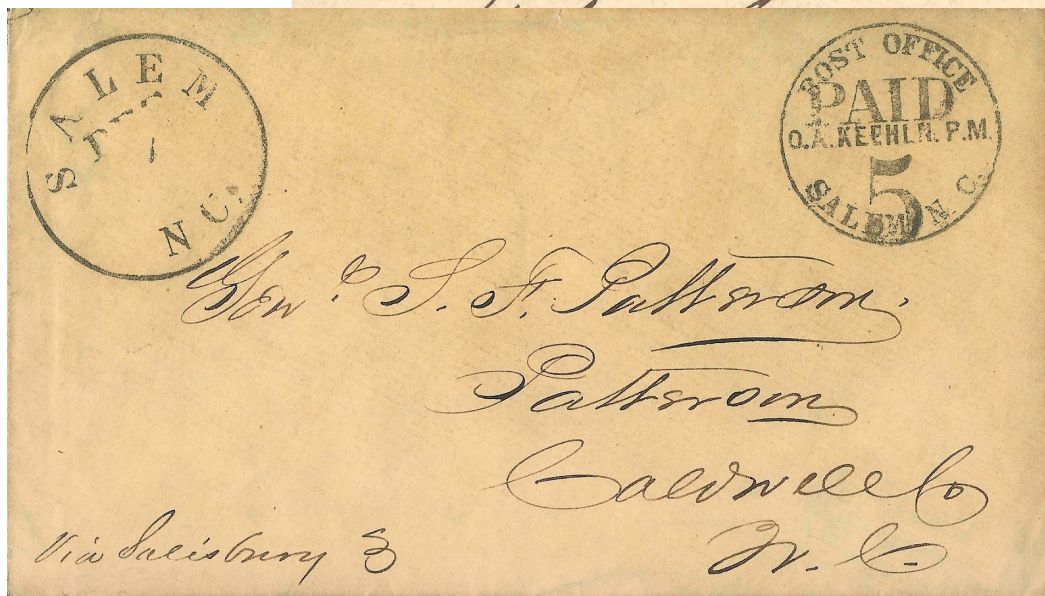 SALEM
DEC
1
N.C.
POST OFFICE
PAID
O.A. KEEHLN. P.M.
5
SALEM N C.
Genl. S. F. Patterson.
Patterson
Caldwell Co
N. C.
Via Salisbury